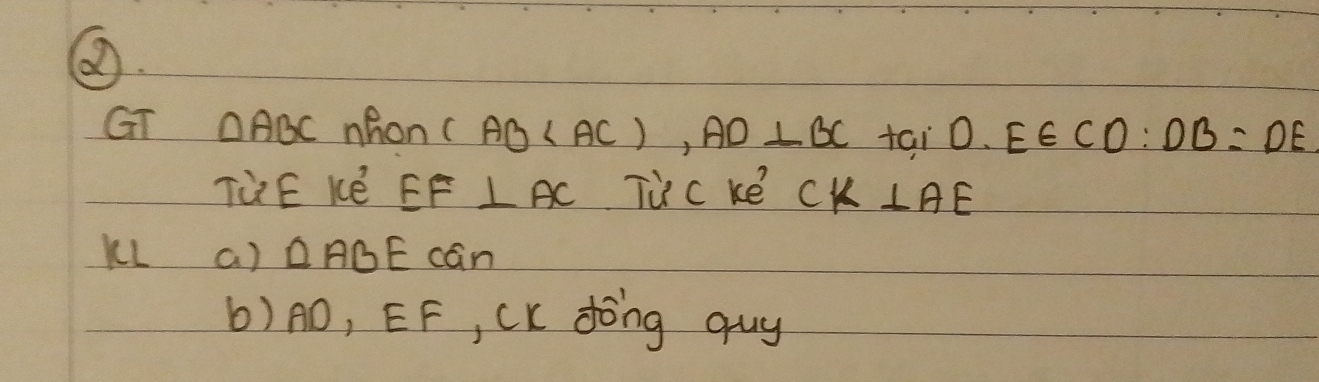 ②.
GT ΔABC nhọn ( AB < AC ) , AD ⊥ BC tại D. E ∈ CD : DB = DE.
Từ E kẻ EF ⊥ AC Từ C kẻ CK ⊥ AE
KL a) ΔABE cân
b) AD , EF , CK đồng quy